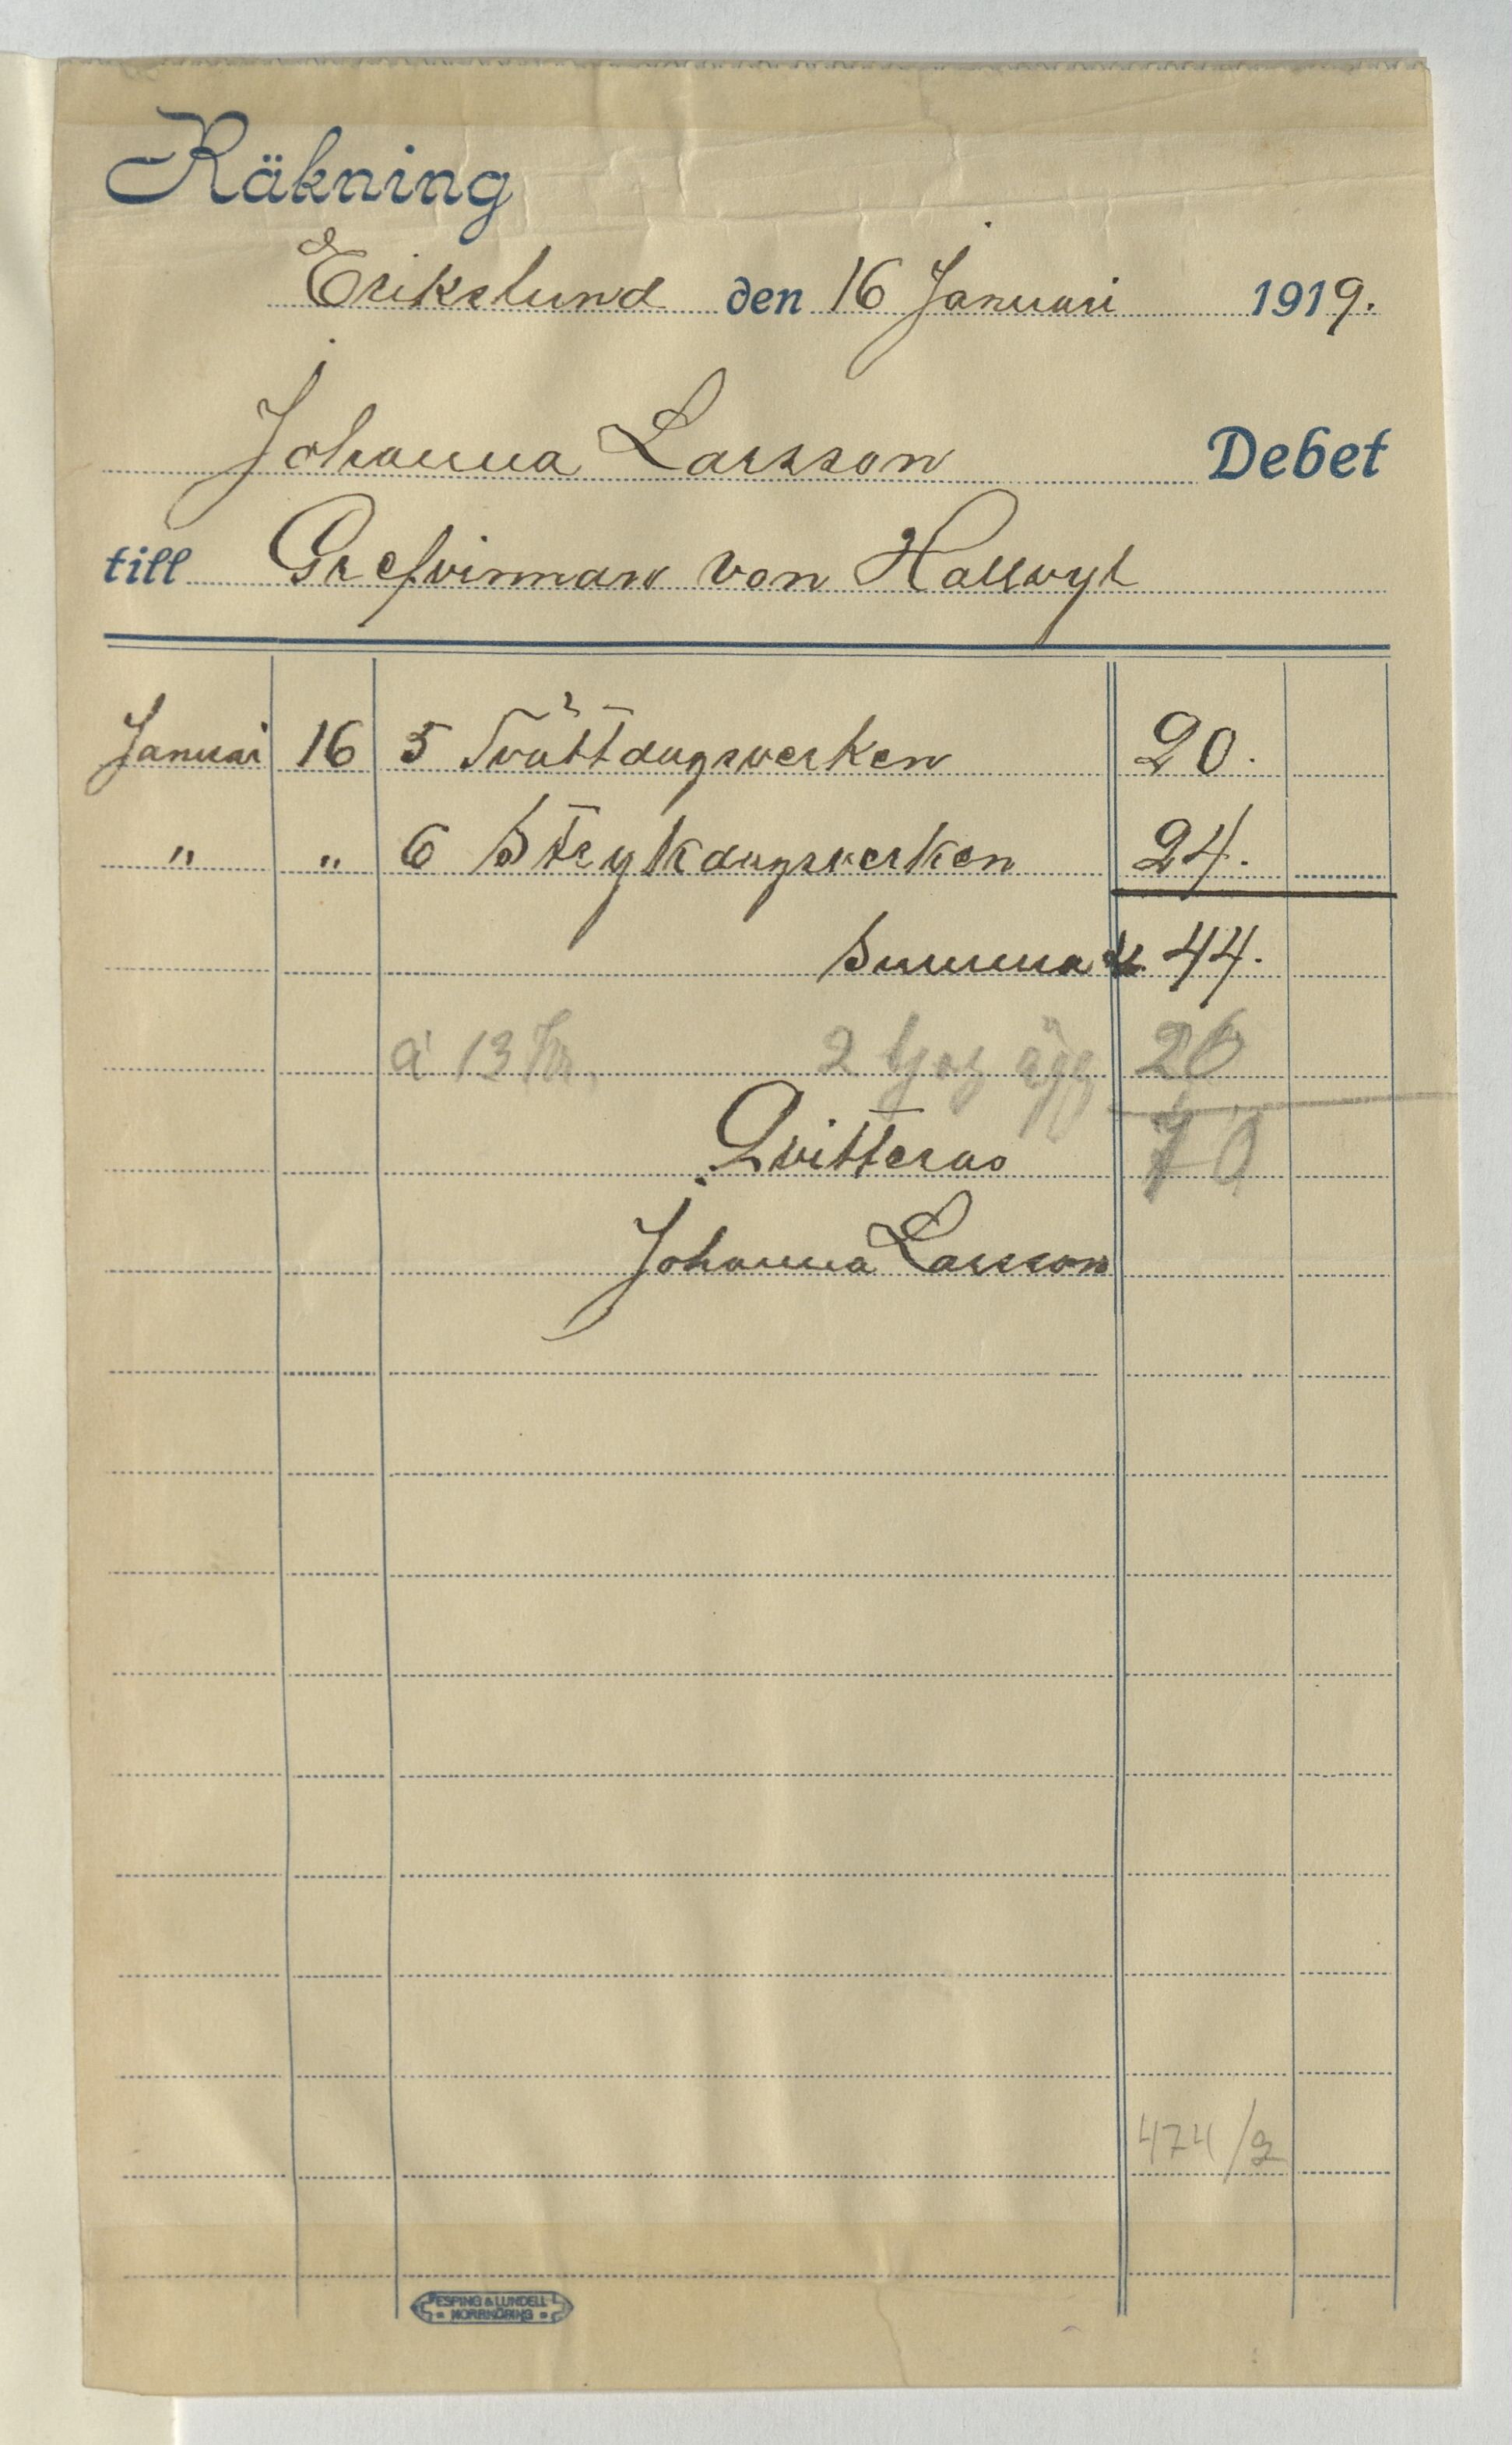 Räkning
Erikslund den 16 Januari 1919.
Johanna Larsson Debet
till Grefvinnan von Hallwyl
Januari 16 5 Tvättdagsverken 20.
" " 6 Strykdagsverken 24.
Summa Kr 44.
à 13 Kr. 2 tjog ägg 26
70
Qvitteras
Johanna Larsson
474/2
ESPING & LUNDELL
NORRKÖPING